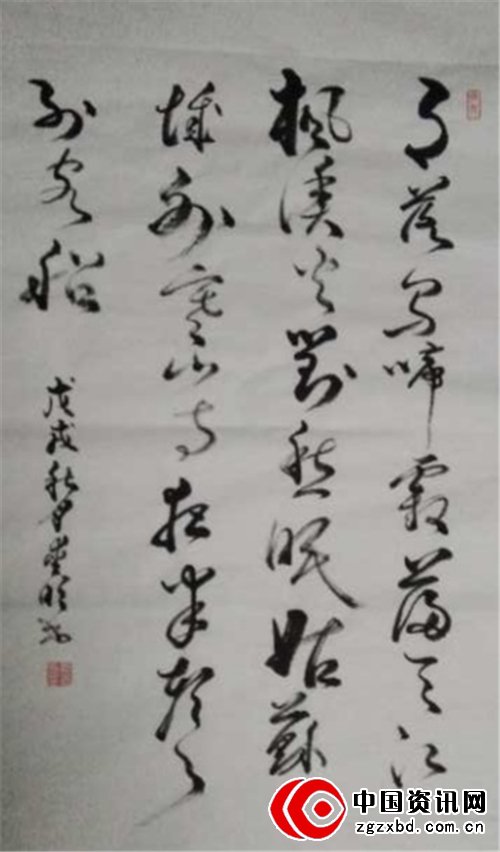 月落烏啼霜满天江
楓渔火對愁眠姑蘇
城外寒山寺夜半
到客船
戊戌秋月
中国资讯网
zgzxbd.com.cn